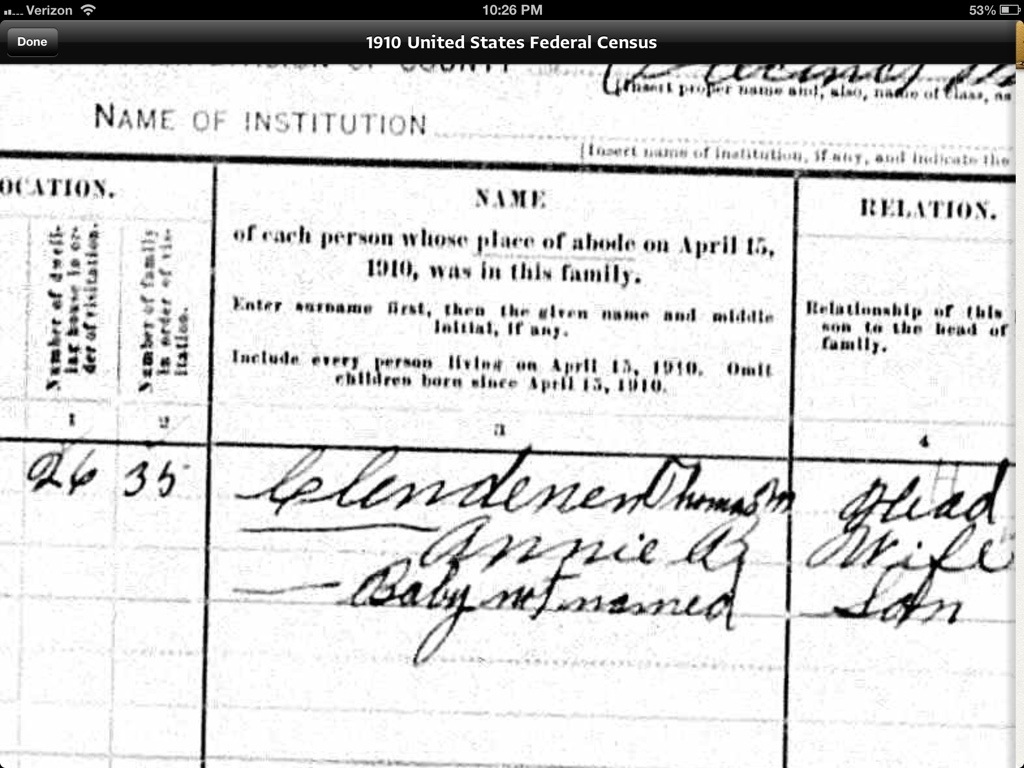 Verizon 10:26 PM 53%
Done 1910 United States Federal Census
(Insert proper name and, also, name of class, as
NAME OF INSTITUTION
[Insert name of institution, if any, and indicate the
OCATION.
Number of dwell-
ing house in or-
der of visitation.
Number of family
in order of vis-
itation.
NAME
of each person whose place of abode on April 15,
1910, was in this family.
Enter surname first, then the given name and middle
initial, if any.
Include every person living on April 15, 1910. Omit
children born since April 15, 1910.
RELATION.
Relationship of this
son to the head of
family.
1 2 3 4
26 35 Clendenen Thomas M Head
Annie Wife
Baby not named Son